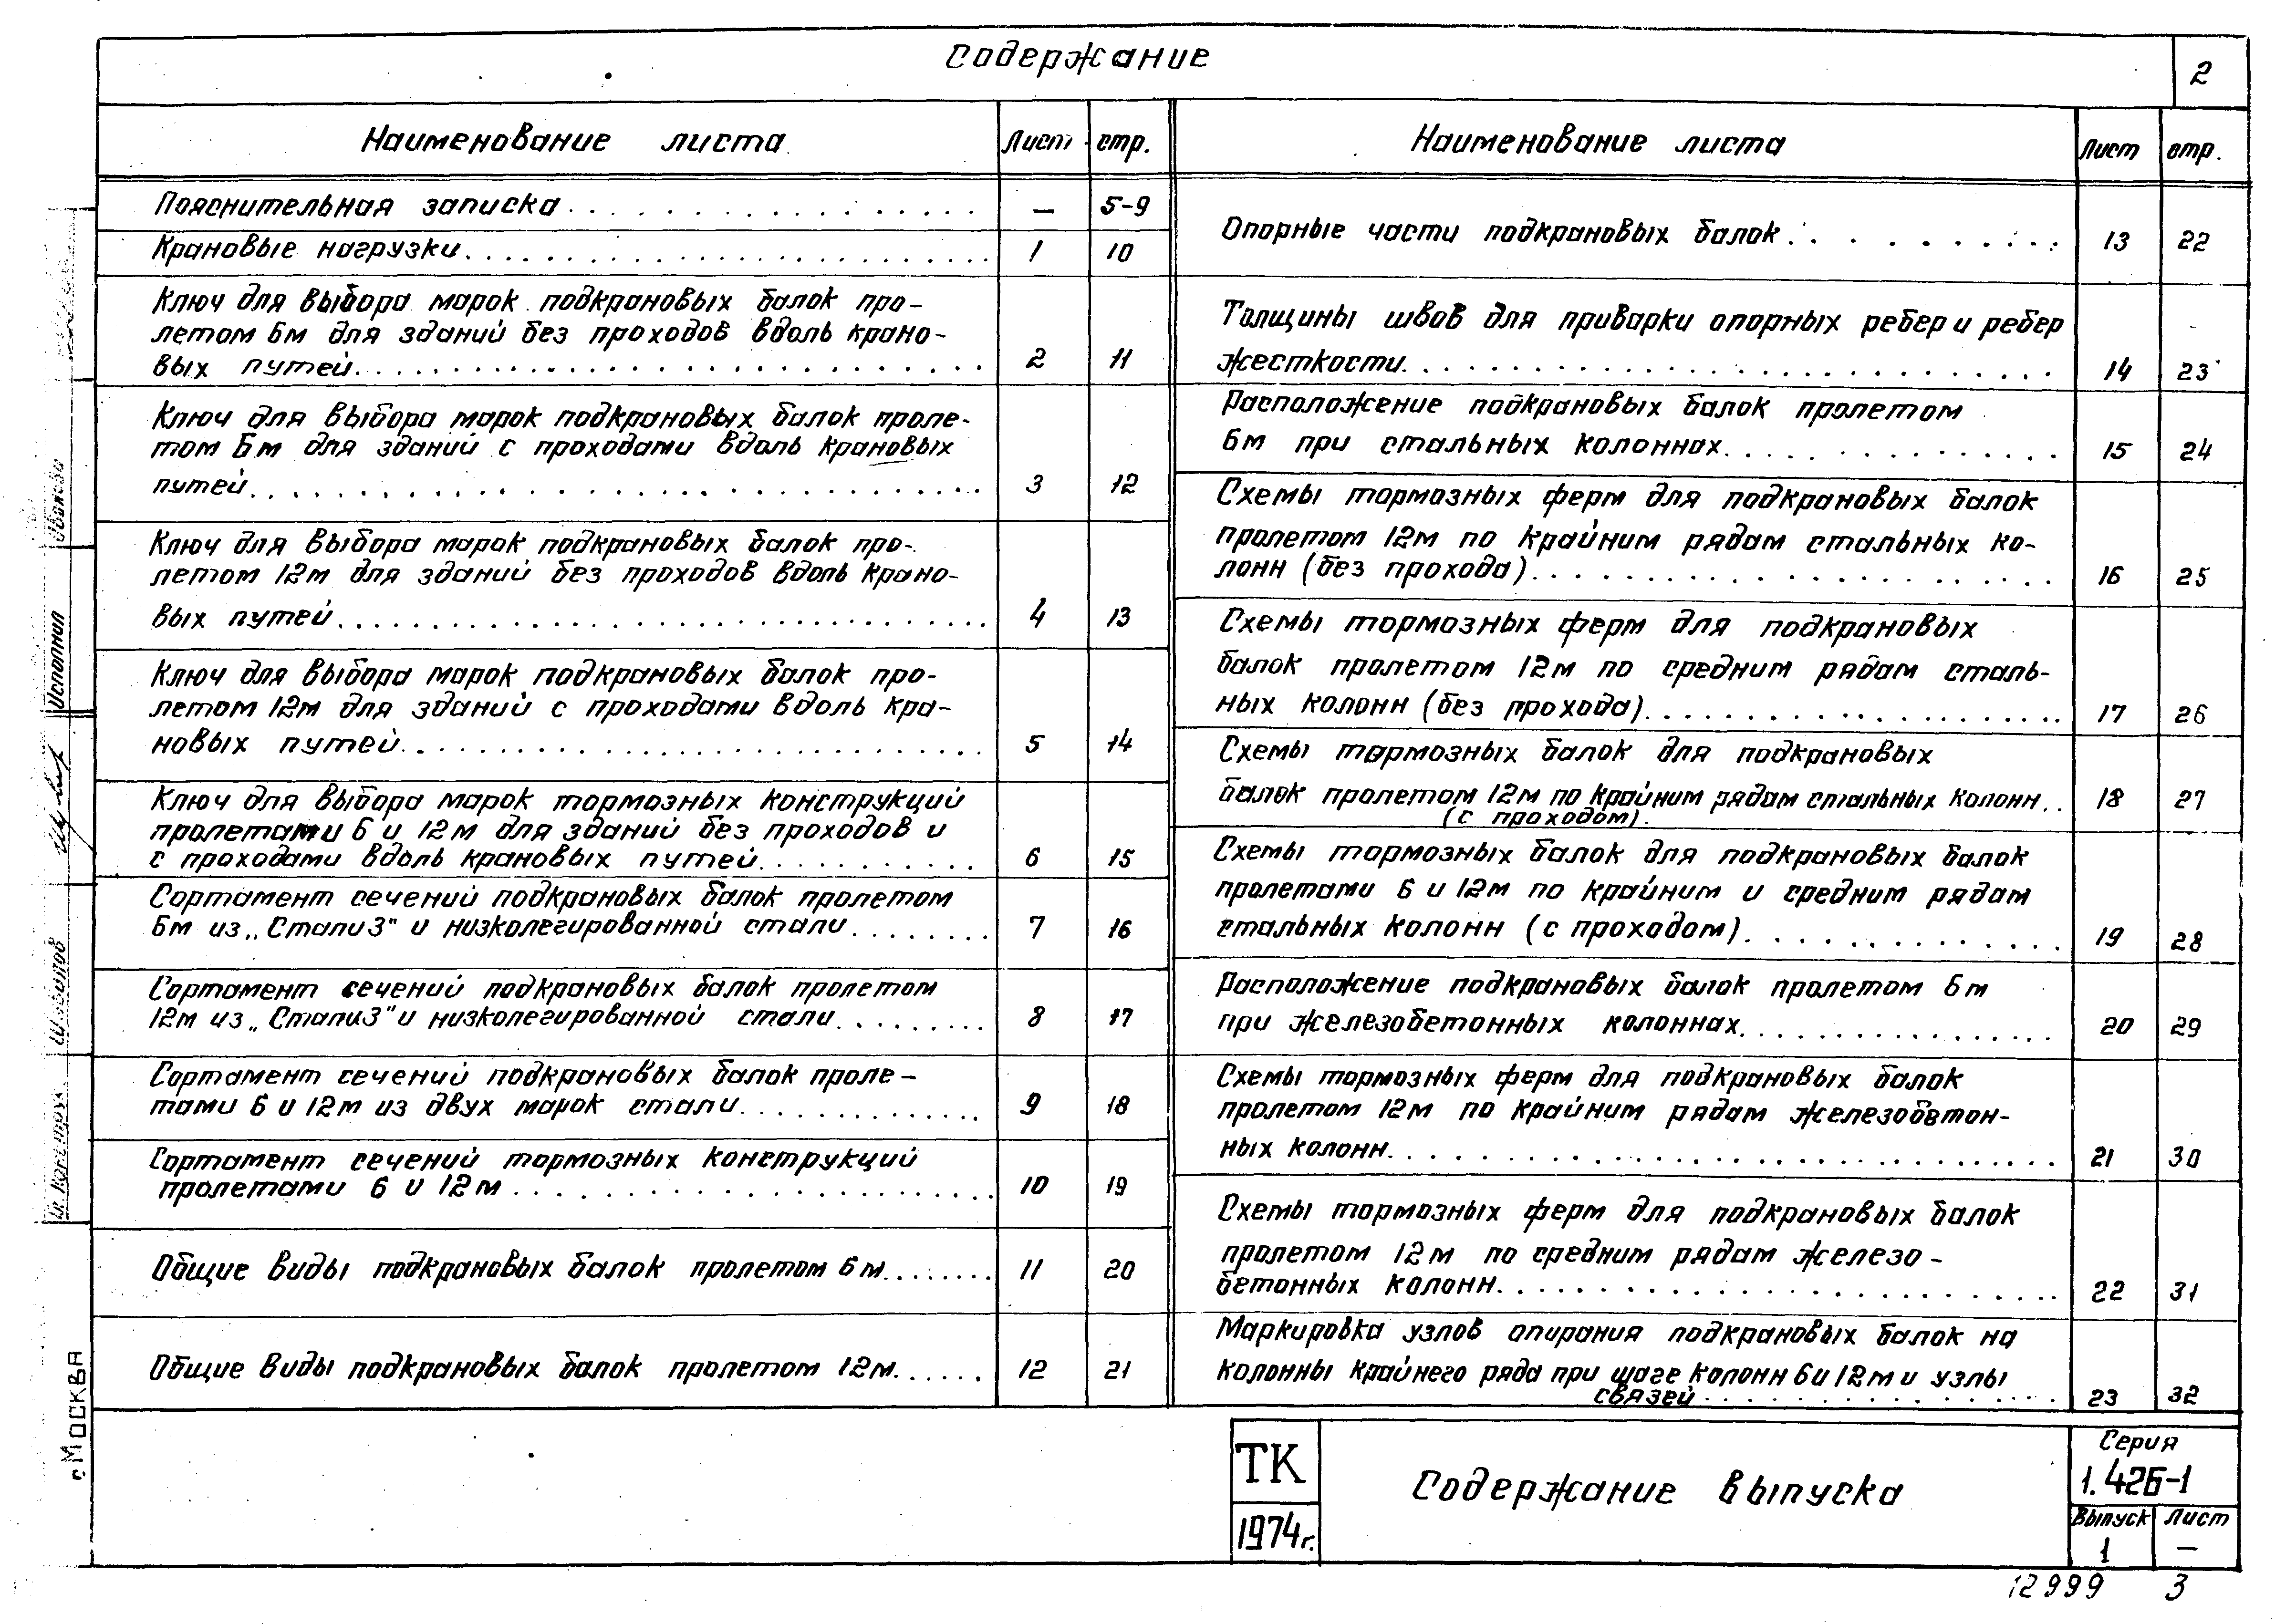 Содержание
2
Наименование листа Лист стр.
Пояснительная записка — 5-9
Крановые нагрузки 1 10
Ключ для выбора марок подкрановых балок про-
летом 6м для зданий без проходов вдоль крано-
вых путей 2 11
Ключ для выбора марок подкрановых балок проле-
том 6м для зданий с проходами вдоль крановых
путей 3 12
Ключ для выбора марок подкрановых балок про-
летом 12м для зданий без проходов вдоль крано-
вых путей 4 13
Ключ для выбора марок подкрановых балок про-
летом 12м для зданий с проходами вдоль кра-
новых путей 5 14
Ключ для выбора марок тормозных конструкций
пролетами 6 и 12м для зданий без проходов и
с проходами вдоль крановых путей 6 15
Сортамент сечений подкрановых балок пролетом
6м из „Стали3" и низколегированной стали 7 16
Сортамент сечений подкрановых балок пролетом
12м из „Стали3" и низколегированной стали 8 17
Сортамент сечений подкрановых балок проле-
тами 6 и 12м из двух марок стали 9 18
Сортамент сечений тормозных конструкций
пролетами 6 и 12м 10 19
Общие виды подкрановых балок пролетом 6м 11 20
Общие виды подкрановых балок пролетом 12м 12 21
Наименование листа Лист стр.
Опорные части подкрановых балок 13 22
Толщины швов для приварки опорных ребер и ребер
жесткости 14 23
Расположение подкрановых балок пролетом
6м при стальных колоннах 15 24
Схемы тормозных ферм для подкрановых балок
пролетом 12м по крайним рядам стальных ко-
лонн (без прохода) 16 25
Схемы тормозных ферм для подкрановых
балок пролетом 12м по средним рядам сталь-
ных колонн (без прохода) 17 26
Схемы тормозных балок для подкрановых
балок пролетом 12м по крайним рядам стальных колонн 18 27
(с проходом)
Схемы тормозных балок для подкрановых балок
пролетами 6 и 12м по крайним и средним рядам
стальных колонн (с проходом) 19 28
Расположение подкрановых балок пролетом 6м
при железобетонных колоннах 20 29
Схемы тормозных ферм для подкрановых балок
пролетом 12м по крайним рядам железобетон-
ных колонн 21 30
Схемы тормозных ферм для подкрановых балок
пролетом 12м по средним рядам железо-
бетонных колонн 22 31
Маркировка узлов опирания подкрановых балок на
колонны крайнего ряда при шаге колонн 6 и 12м и узлы
связей 23 32
ТК
1974г.
Содержание выпуска
Серия
1.426-1
Выпуск Лист
1 —
12999 3
Исполнил
г. Москва